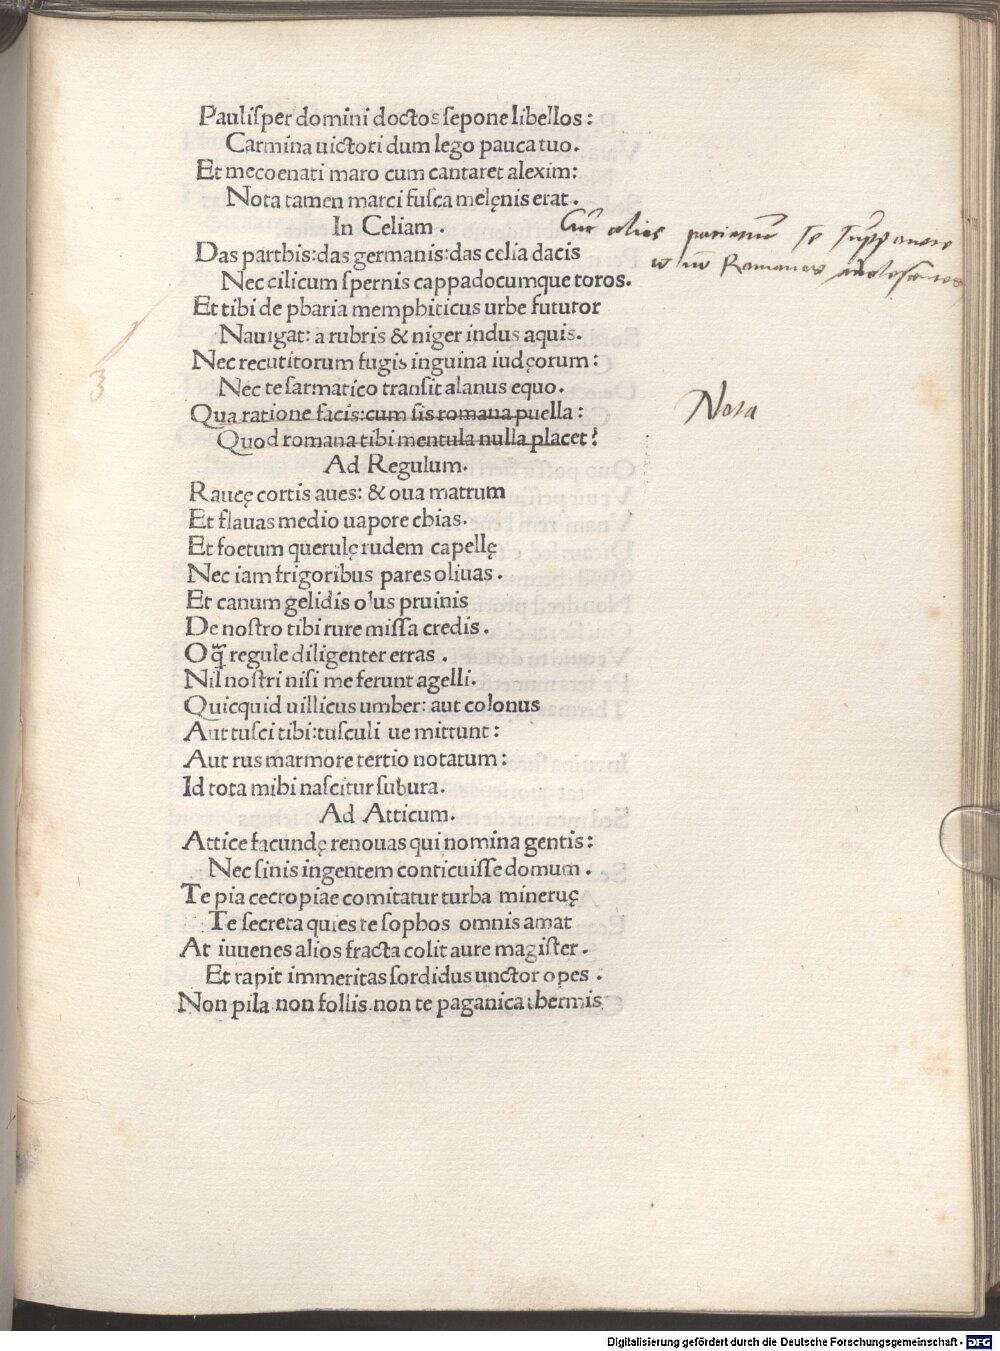 Paulisper domini doctos sepone libellos:
Carmina uictori dum lego pauca tuo.
Et mecoenati maro cum cantaret alexim:
Nota tamen marci fusca melęnis erat.
In Celiam.
Cur alios patiamur te supponere
Das parthis: das germanis: das celia dacis
Romanos
Nec cilicum spernis cappadocumque toros.
Et tibi de pharia memphiticus urbe fututor
Nauigat: a rubris & niger indus aquis.
Nec recutitorum fugis inguina iudęorum:
3
Nec te sarmatico transit alanus equo.
Qua ratione facis: cum sis romana puella:
Nota
Quod romana tibi mentula nulla placet?
Ad Regulum.
Raucę cortis aues: & oua matrum
Et flauas medio uapore chias.
Et foetum querulę rudem capellę
Nec iam frigoribus pares oliuas.
Et canum gelidis olus pruinis
De nostro tibi rure missa credis.
O q̃ regule diligenter erras.
Nil nostri nisi me ferunt agelli.
Quicquid uillicus umber: aut colonus
Aut tusci tibi: tusculi ue mittunt:
Aut rus marmore tertio notatum:
Id tota mihi nascitur subura.
Ad Atticum.
Attice facundę renouas qui nomina gentis:
Nec sinis ingentem conticuisse domum.
Te pia cecropiae comitatur turba mineruę
Te secreta quies te sophos omnis amat
At iuuenes alios fracta colit aure magister.
Et rapit immeritas sordidus unctor opes.
Non pila non follis non te paganica thermis
Digitalisierung gefördert durch die Deutsche Forschungsgemeinschaft - DFG